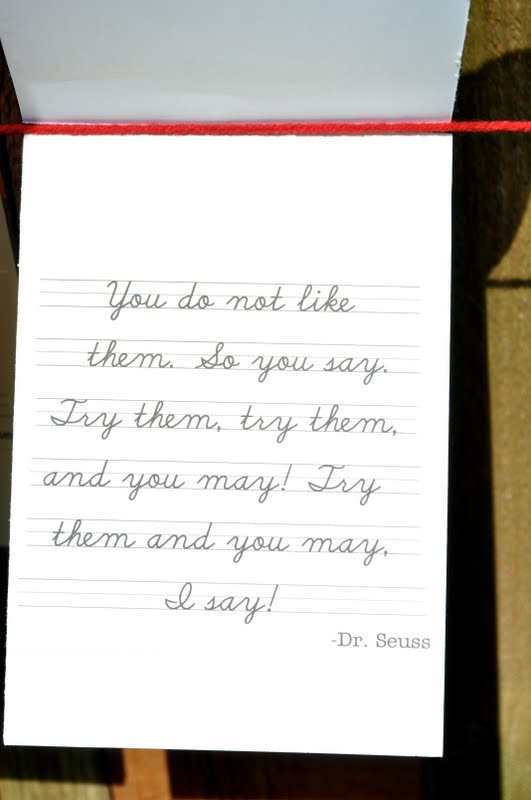 You do not like
them. So you say.
Try them, try them,
and you may! Try
them and you may,
I say!
-Dr. Seuss